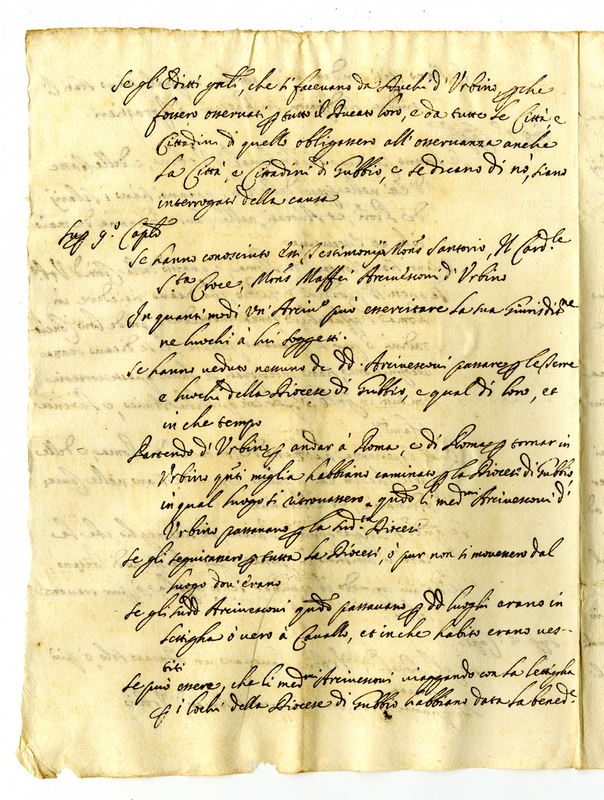 Se gli Editti gnãli, che si facevano da Duchi d'Urbino, p che
fossero osservati p tutto il Ducato loro, e da tutte le Città e
Cittadini di quello obligassero all'osservanza anche
La Città, e Cittadini di Gubbio, e se dicano di nò, siano
interrogati della causa
Sup 9.º Caplo
Se hanno conosciuto essi Testimonij Monsʳ Santorio, Il Cardˡᵉ
Sᵗᵃ Croce, Monsʳ Maffei Arcivesconi d'Urbino
In quanti modi un'Arcivº può essercitare la sua Giurisditⁿᵉ
ne luochi à lui soggetti.
Se hanno veduto nessuno de dd. Arcivesconi passare p le Terre
e luochi della Diocese di Gubbio, e qual di loro, et
in che tempo
Partendo d'Urbino p andar à Roma, e di Roma p tornar in
Urbino qnti miglia habbiano caminato p la Diocesi di Gubbio
in qual luogo si ritrovassero qndo li medᵐⁱ Arcivesconi d'
Urbino passavano p la sudᵗᵃ Diocesi
Se gli seguitassero p tutta la Diocesi, ò pur non si movessero dal
luogo dov'erano
Se gli sudd Arcivesconi qndo passavano p dd luoghi erano in
Lettigha ò vero à Cavallo, et in che habito erano ves-
titi
Se può essere, che li medᵐⁱ Arcivesconi viaggando con la lettigha
p i lochi della Diocese di Gubbio habbiano data la benedᵉ